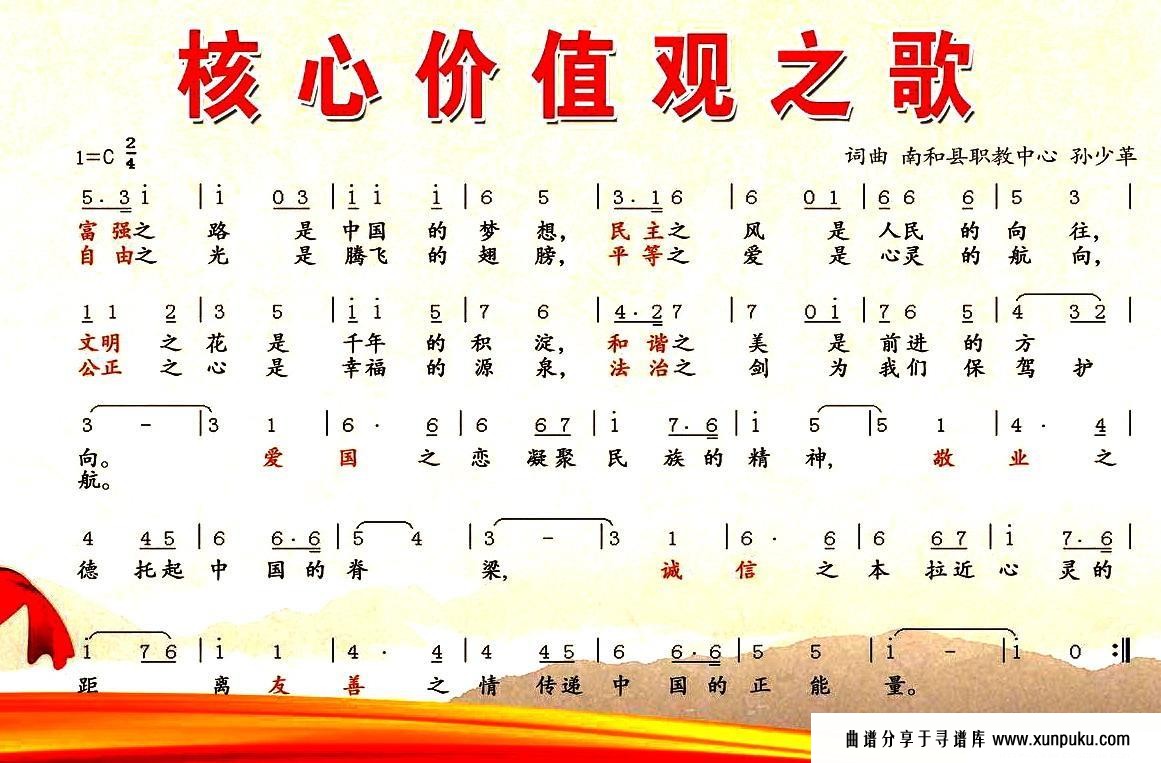 核心价值观之歌
1=C 2/4 词曲 南和县职教中心 孙少革
5·3 i | i 0 3 | i i i | 6 5 | 3·1 6 | 6 0 1 | 6 6 6 | 5 3 |
富强之 路 是 中国 的 梦 想, 民主之 风 是 人民 的 向 往,
自由之 光 是 腾飞 的 翅 膀, 平等之 爱 是 心灵 的 航 向,
1 1 2 | 3 5 | i i 5 | 7 6 | 4·2 7 | 7 0 i | 7 6 5 | 4 3 2 |
文明 之 花 是 千年 的 积 淀, 和谐之 美 是 前进 的 方
公正 之 心 是 幸福 的 源 泉, 法治之 剑 为 我们 保 驾 护
3 - | 3 1 | 6 · 6 | 6 6 7 | i 7·6 | i 5 | 5 1 | 4 · 4 |
向。 爱 国 之 恋 凝聚 民 族的 精 神, 敬 业 之
航。
4 4 5 | 6 6·6 | 5 4 | 3 - | 3 1 | 6 · 6 | 6 6 7 | i 7·6 |
德 托起 中 国的 脊 梁, 诚 信 之 本 拉近 心 灵的
i 7 6 | i 1 | 4 · 4 | 4 4 5 | 6 6·6 | 5 5 | i - | i 0 :‖
距 离 友 善 之 情 传递 中 国的 正 能 量。
曲谱分享于寻谱库 www.xunpuku.com